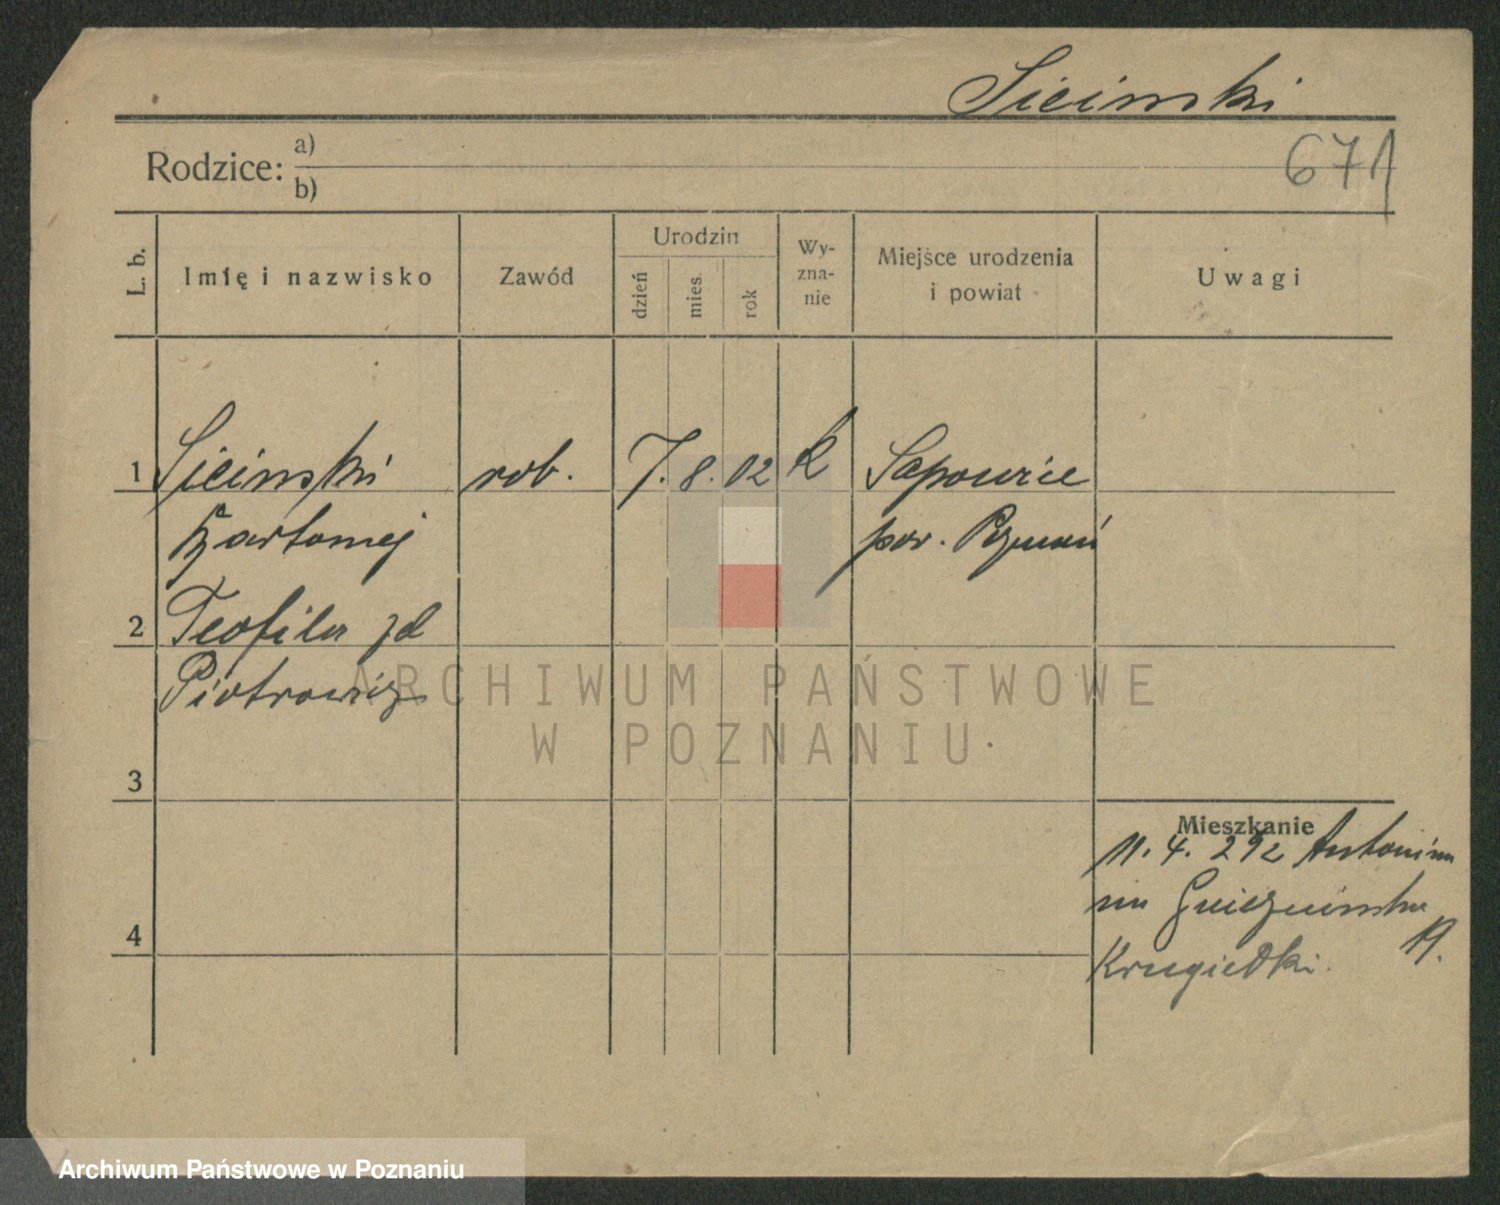 Siciński
671
Rodzice: a)
b)
L. b.
Imię i nazwisko
Zawód
Urodzin
dzień
mies.
rok
Wy-
zna-
nie
Miejsce urodzenia
i powiat
Uwagi
1 Siciński rob. 7. 8. 02 k Sapowice
Bartomiej pow. Poznań
2 Teofila zd
Piotrowicz
3
Mieszkanie
11. 4. 292 Antonin
4
19.
ARCHIWUM PAŃSTWOWE
W POZNANIU
Archiwum Państwowe w Poznaniu